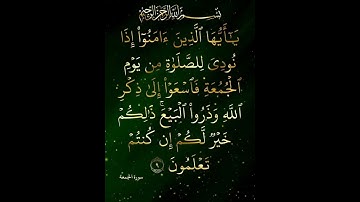 بسم الله الرحمن الرحيم
يَـٰٓأَيُّهَا ٱلَّذِينَ ءَامَنُوٓا۟ إِذَا
نُودِىَ لِلصَّلَوٰةِ مِن يَوْمِ
ٱلْجُمُعَةِ فَٱسْعَوْا۟ إِلَىٰ ذِكْرِ
ٱللَّهِ وَذَرُوا۟ ٱلْبَيْعَ ۚ ذَٰلِكُمْ
خَيْرٌ لَّكُمْ إِن كُنتُمْ
تَعْلَمُونَ ٩
سورة الجمعة